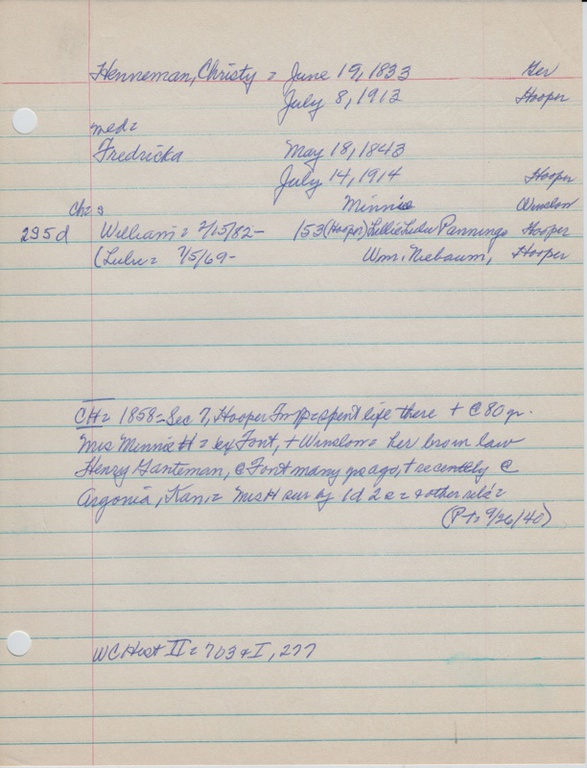 Henneman, Christy = June 19, 1833 Ger
July 8, 1913 Hooper
med=
Fredricka May 18, 1843
July 14, 1914 Hooper
Minnie Winslow
Ch= s
295d William = 2/15/82- 153 (Hooper) Lillie Lulu Panning Hooper
(Lulu = 7/5/69- Wm. Niebaum, Hooper
CH= 1858 = Sec 7, Hooper Twp = spent life there + @ 80 yr.
Mrs Minnie H = ex Font, + Winslow = her bro in law
Henry Ganteman, @ Font many yrs ago, + recently @
Argonia, Kan. = Mrs H sur by 1d 2s = + other rels =
(Pt = 9/26/40)
WC Hist II = 703 + I, 277